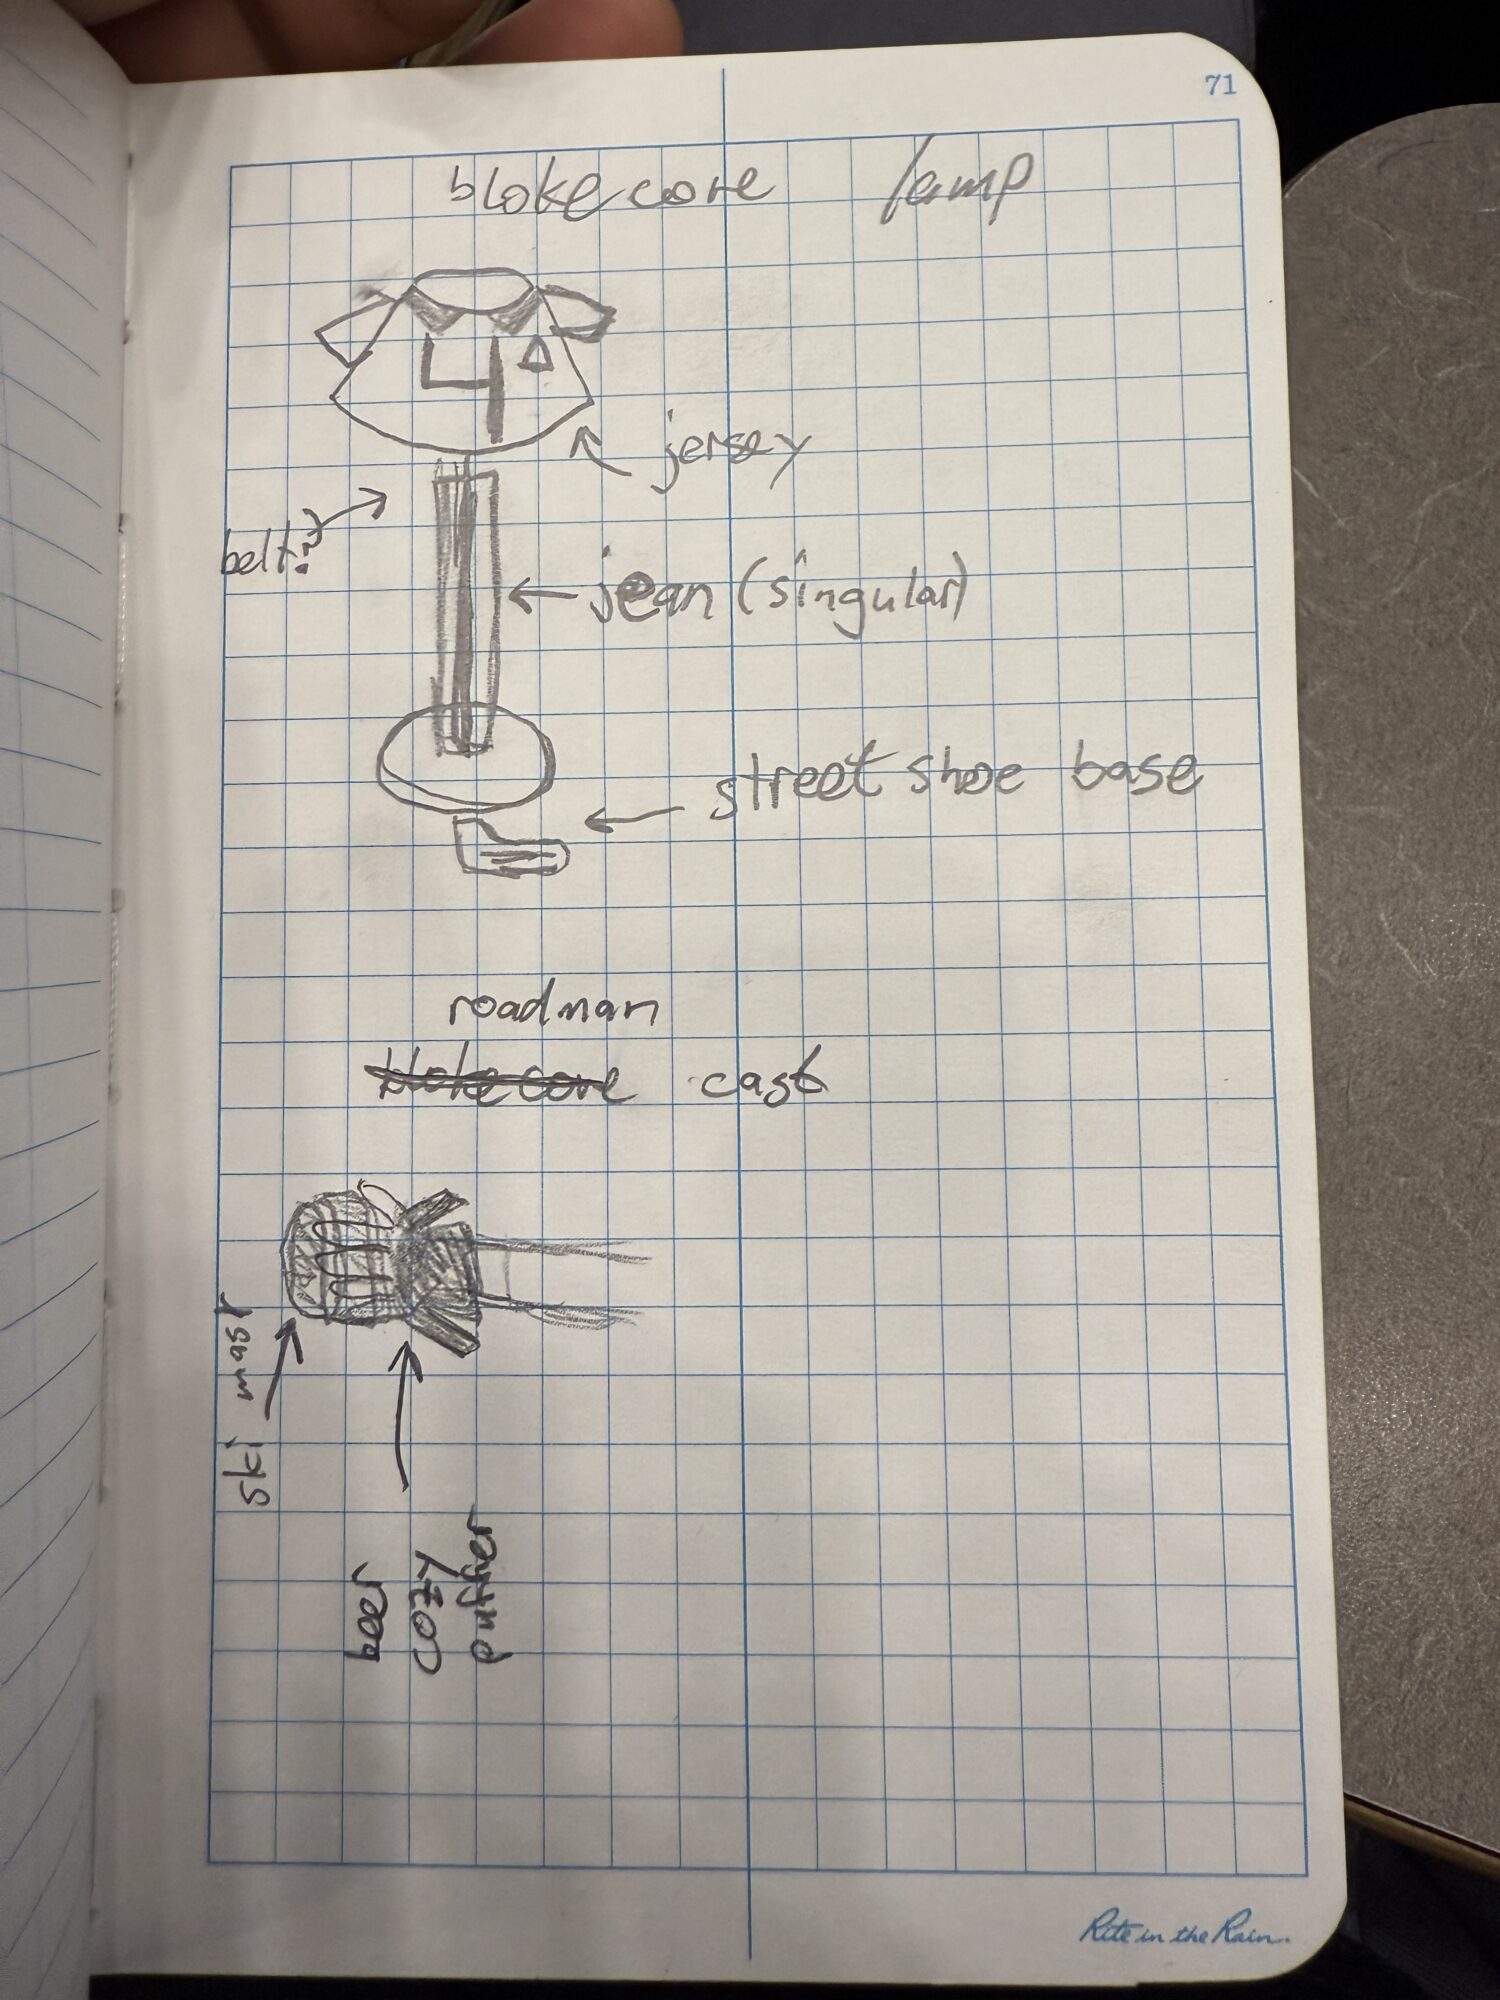 71
blokecore lamp
4
jersey
belt?
jean (singular)
street shoe base
roadman
blokecore cast
ski mask
beer
cozy
puffer
Rite in the Rain.